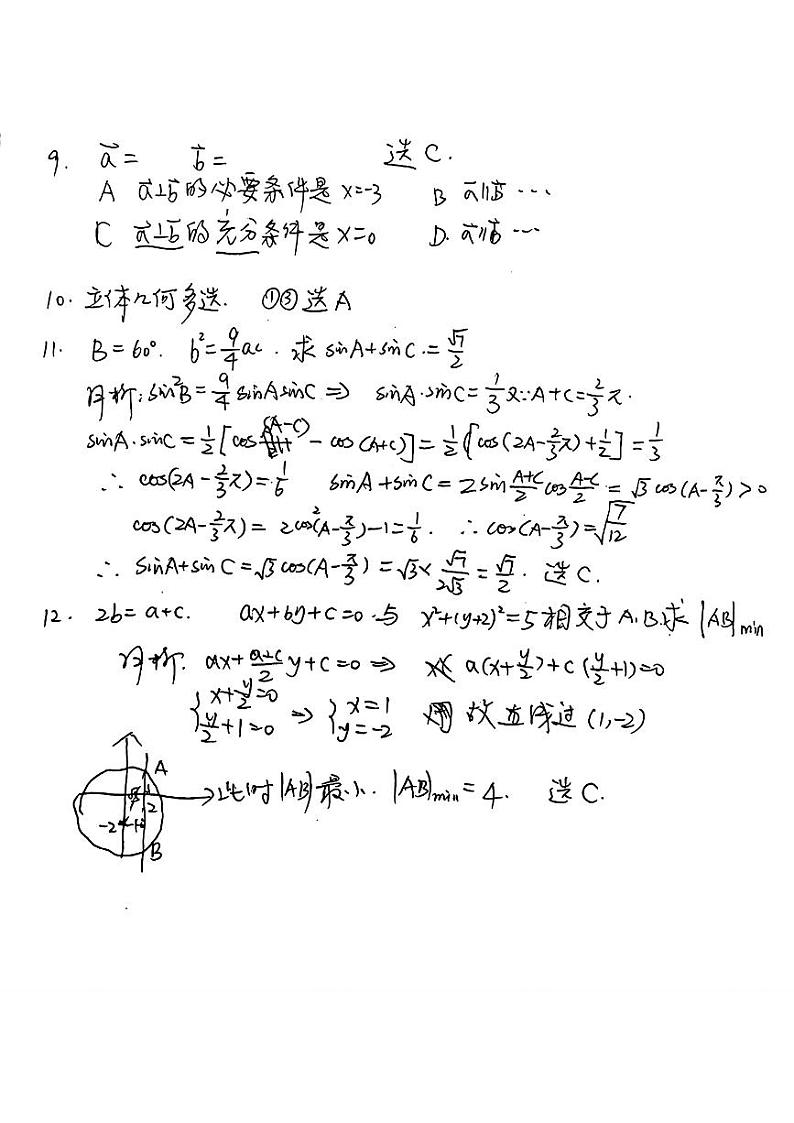 9. a⃗= b⃗= 选C.
A a⃗⊥b⃗的必要条件是x=-3 B a⃗∥b⃗ …
C a⃗⊥b⃗的充分条件是x=0 D. a⃗∥b⃗ …
10. 立体几何多选. ①③选A
11. B=60°. b²=9/4ac. 求 sinA+sinC.=√7/2
解析:sin²B=9/4sinAsinC⇒ sinA·sinC=1/3又∵A+C=2/3π.
sinA·sinC=1/2[cos(A-C)-cos(A+C)]=1/2[cos(2A-2/3π)+1/2]=1/3
∴cos(2A-2/3π)=1/6 sinA+sinC=2sin(A+C)/2cos(A-C)/2=√3cos(A-π/3)>0
cos(2A-2/3π)=2cos²(A-π/3)-1=1/6. ∴cos(A-π/3)=√(7/12)
∴sinA+sinC=√3cos(A-π/3)=√3×√7/2√3=√7/2. 选C.
12. 2b=a+c. ax+by+c=0与 x²+(y+2)²=5相交于A.B.求|AB|min
解析. ax+(a+c)/2y+c=0⇒ a(x+y/2)+c(y/2+1)=0
{x+y/2=0
y/2+1=0 ⇒{x=1
y=-2 故直线过(1,-2)
A
此时|AB|最小. |AB|min=4. 选C.
1
2
-2
1
B